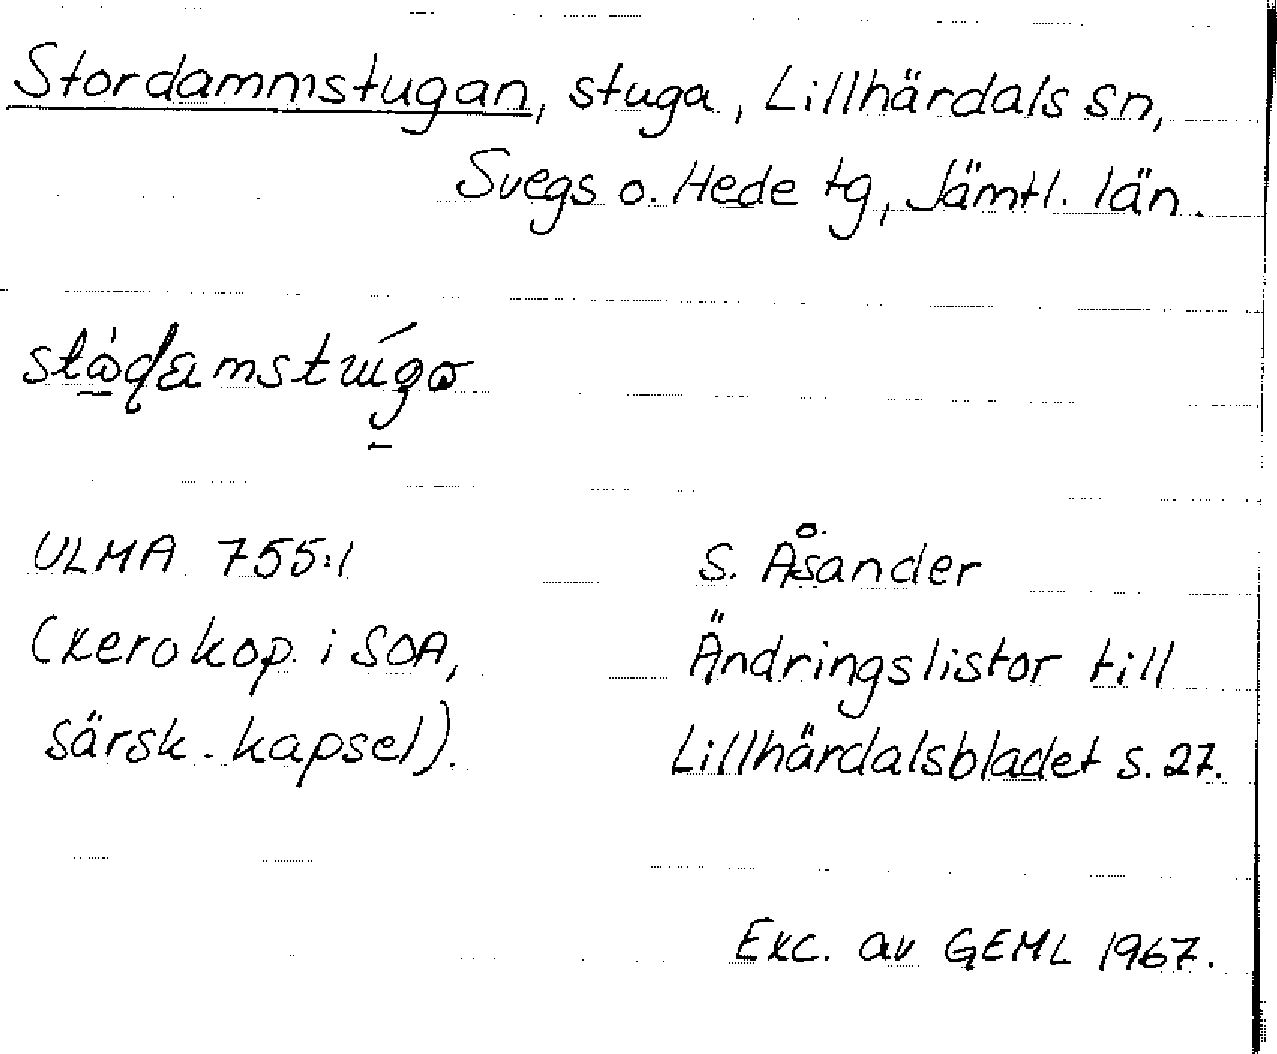 Stordammstugan, stuga, Lillhärdals sn,
Svegs o. Hede tg, Jämtl. län.
ULMA 755:1
(xerokop. i SOA,
särsk. kapsel).
S. Åsander
Ändringslistor till
Lillhärdalsbladet s. 27.
Exc. av GEML 1967.